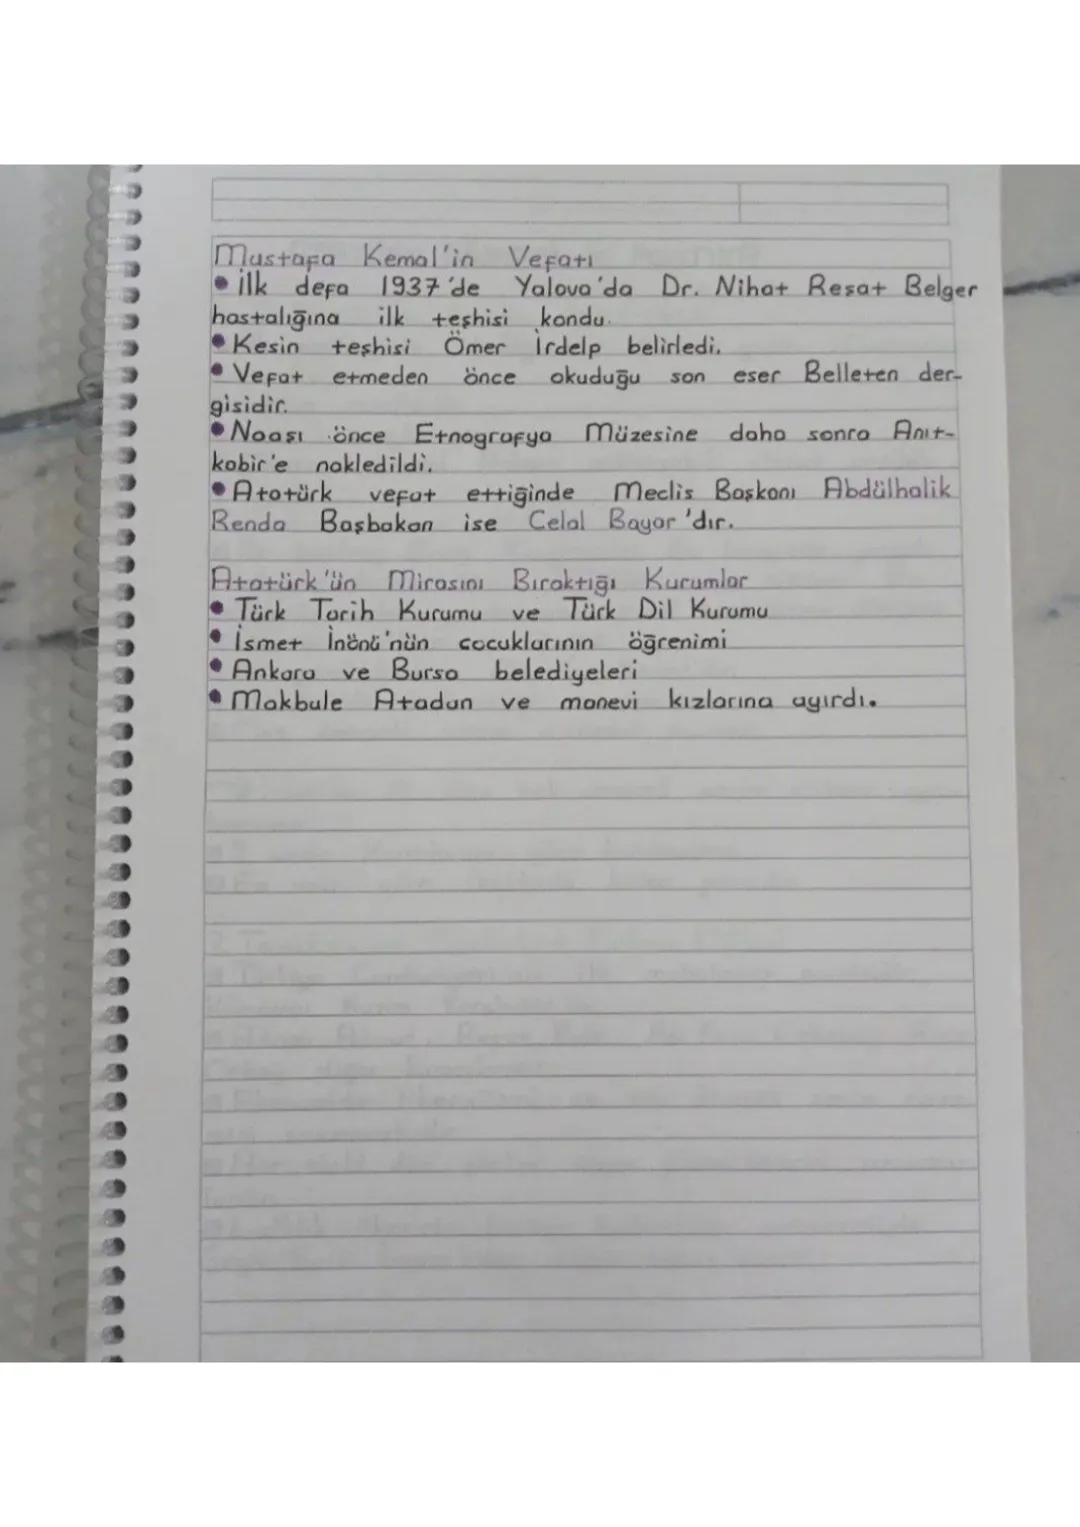 Mustafa Kemal'in Vefatı
• İlk defa 1937'de Yalova'da Dr. Nihat Reşat Belger
hastalığına ilk teşhisi kondu.
• Kesin teşhisi Ömer İrdelp belirledi.
• Vefat etmeden önce okuduğu son eser Belleten der-
gisidir.
• Naaşı önce Etnografya Müzesine daha sonra Anıt-
kabir'e nakledildi.
• Atatürk vefat ettiğinde Meclis Başkanı Abdülhalik
Renda Başbakan ise Celal Bayar'dır.
Atatürk'ün Mirasını Bıraktığı Kurumlar
• Türk Tarih Kurumu ve Türk Dil Kurumu
• İsmet İnönü'nün çocuklarının öğrenimi
• Ankara ve Bursa belediyeleri
• Makbule Atadan ve manevi kızlarına ayırdı.